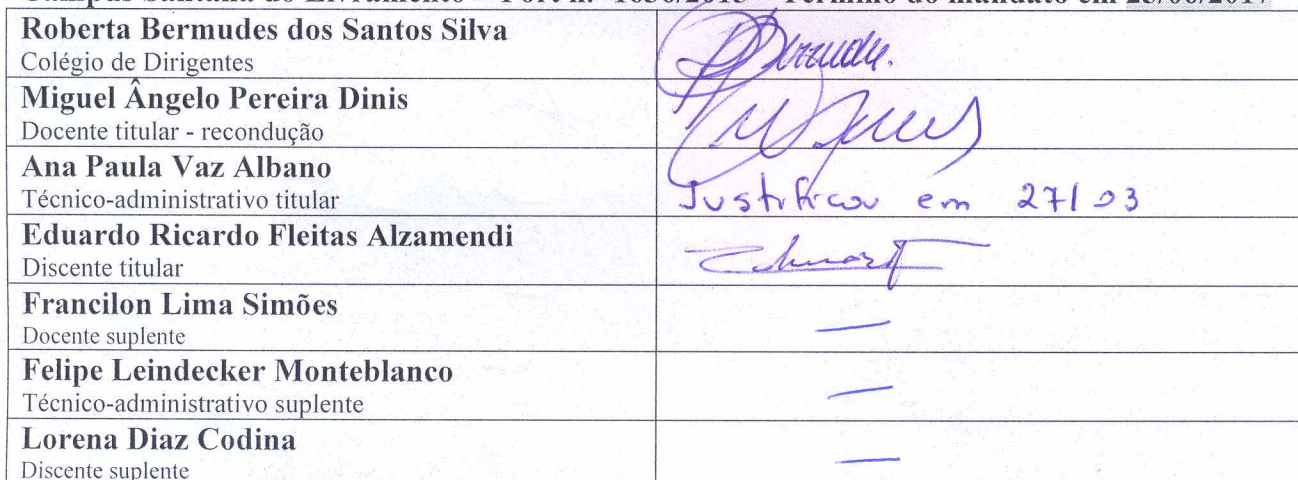 Roberta Bermudes dos Santos Silva
Colégio de Dirigentes
Bermudes.
Miguel Ângelo Pereira Dinis
Docente titular - recondução
Ana Paula Vaz Albano
Técnico-administrativo titular
Justificou em 27/03
Eduardo Ricardo Fleitas Alzamendi
Discente titular
Francilon Lima Simões
Docente suplente
—
Felipe Leindecker Monteblanco
Técnico-administrativo suplente
—
Lorena Diaz Codina
Discente suplente
—